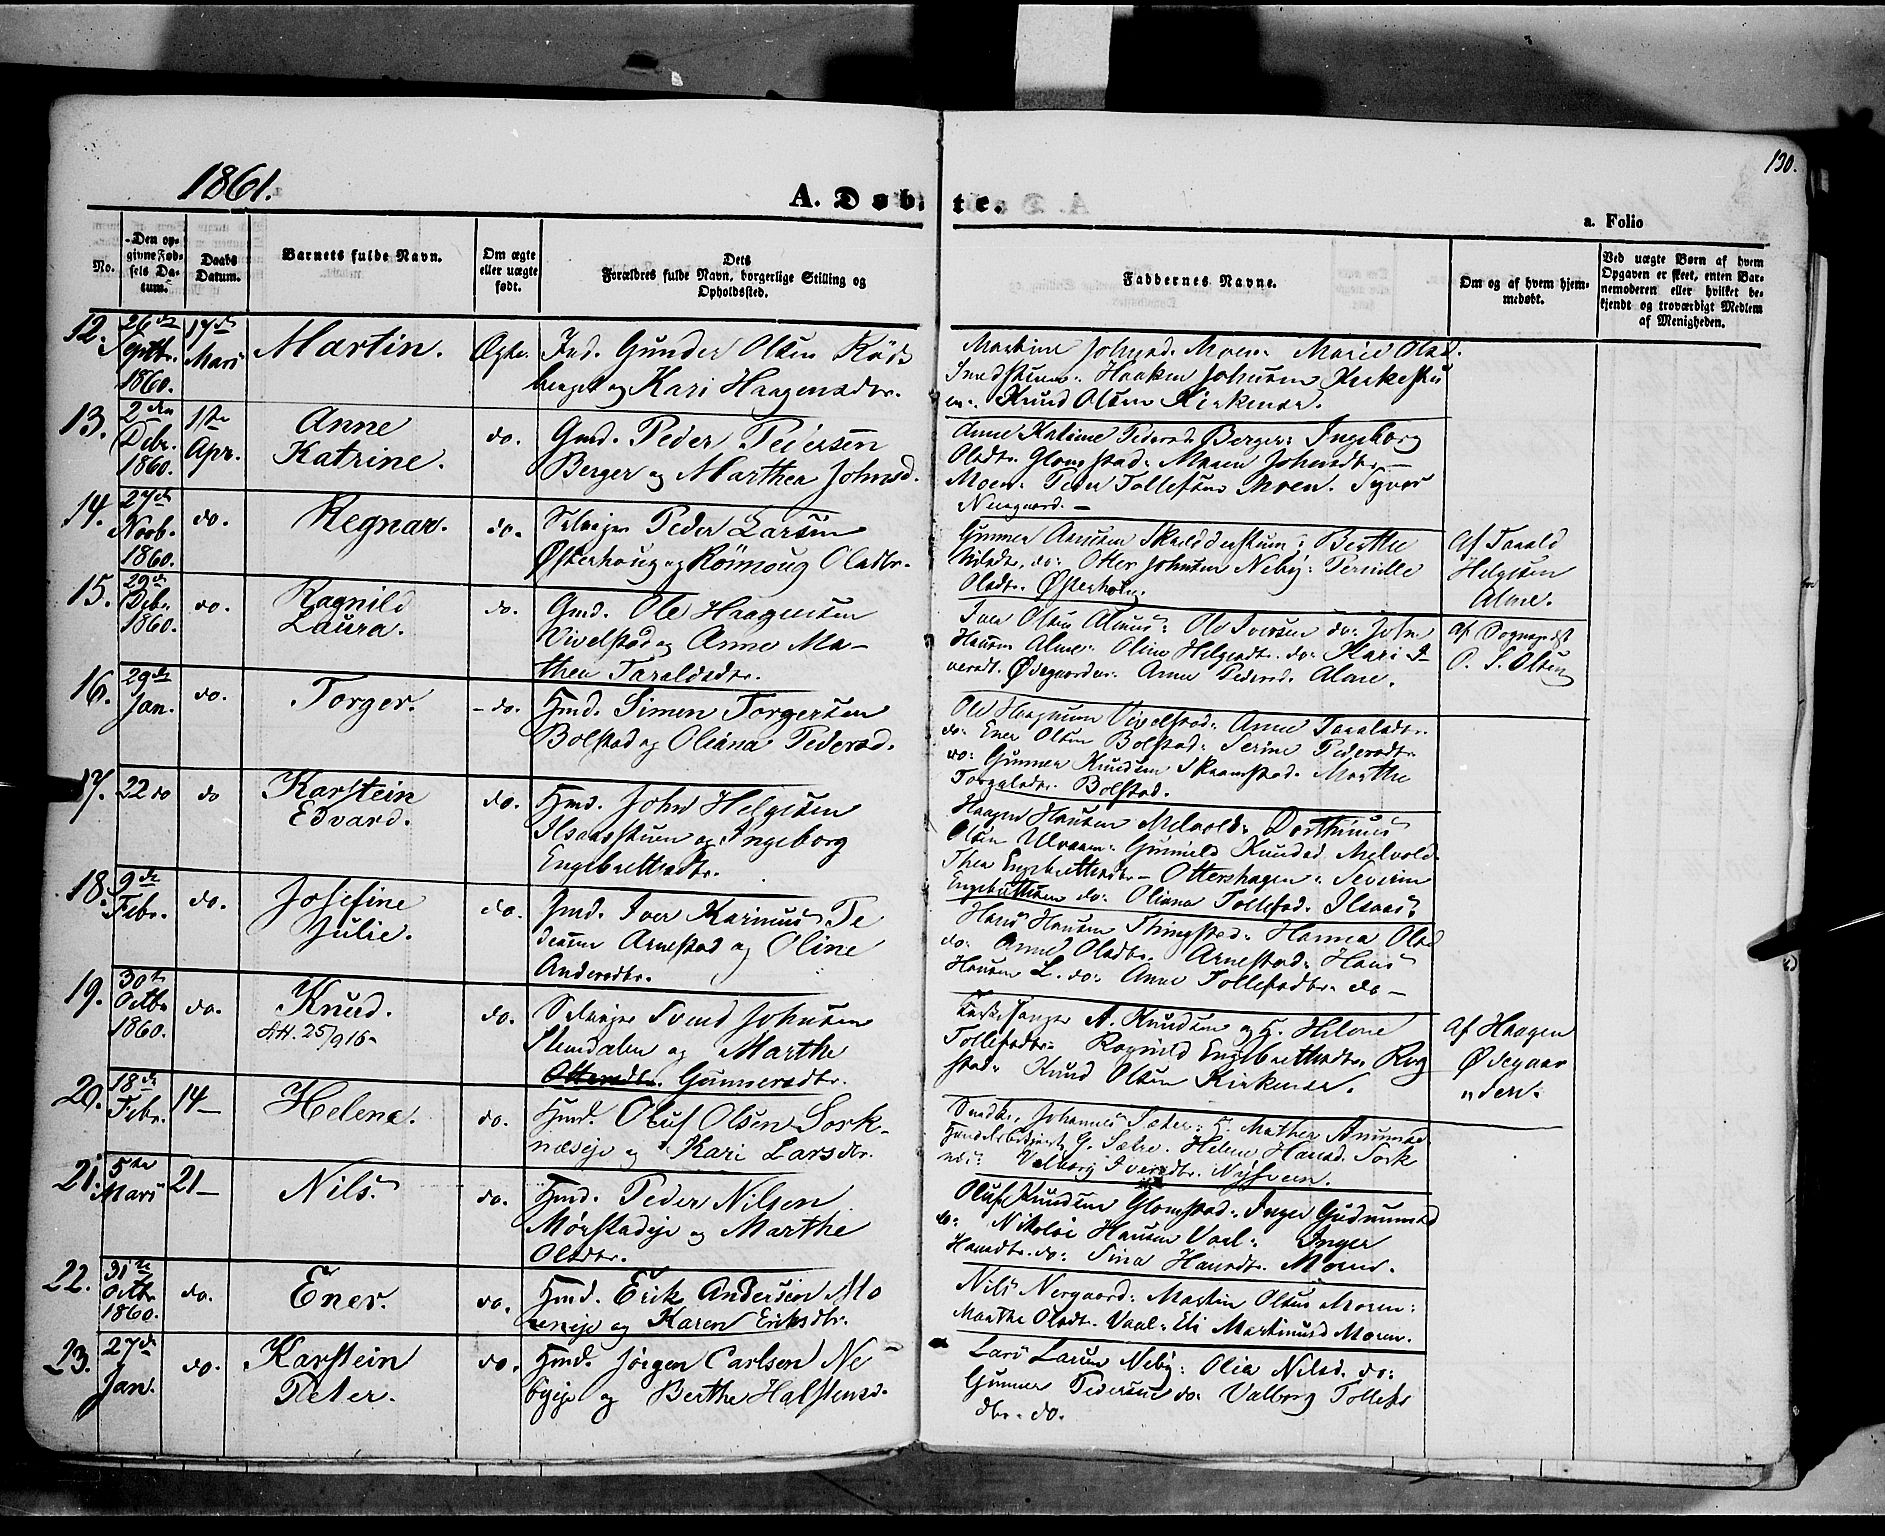 130.
1861.
A. Døbte.
a. Folio
No.
Den opgivne Fødsels Datum.
Daabs Datum.
Barnets fulde Navn.
Om ægte eller uægte født.
Dets Forældres fulde Navn, borgerlige Stilling og Opholdssted.
Faddernes Navne.
Om og af hvem hjemmedøbt.
Ved uægte Børn af hvem Opgaven er skeet, enten Barnemoderen eller hvilket bekjendt og troværdigt Medlem af Menigheden.
12. 26de Septbr. 1860. 17de Mars Martin. Ægte. Ind. Gunder Olsen Röds
berget og Kari Haagensdtr.
Martine Johnsd. Moen. Marie Olsd.
Haaken Johnsen Kirkestu
en. Knud Olsen Kirkenær.
13. 2den Debr. 1860. 1ste Apr. Anne
Katrine. do. Gmd. Peder Pedersen
Berger og Marthea Johnsd.
Anne Katrine Pedersd. Berger: Ingeborg
Olsdtr. Glomstad: Maren Johnsdtr.
Moen: Peder Tollefsen Moen.
14. 27de Novb. 1860. do. Regnar. do. Selvejer Peder Larsen
Østerhaug og Rönnoug Olsdtr.
Gunner Berthe
do: Otter Johnsen Neby: Pernille
Olsdtr. Østerhoug.
Af Tarald
Helgesen
Alme.
15. 29de Debr. 1860. do. Ragnild
Laura. do. Gmd. Ole Haagensen
Vivelstad og Anne Ma-
thea Taraldsdtr.
Iver Olsen Alme: Ole Iversen do: John
Hansen Alme: Oline Helgesdtr. do: Kari I
versdt. Ødegaarden: Anne Pedersd. Alme.
Af Sognepræst
O. S. Olsen
16. 29de Jan. do. Torger. do. Hmd. Simen Torgersen
Bolstad og Oliana Pedersd.
Ole Haagensen Vivelstad: Anne Taraldsdtr.
do: Ener Olsen Bolstad: Serine Pedersdtr.
do: Gunner Knudsen Skramstad: Marthe
Bolstad.
17. 22 do do Karstein
Edvard. do. Hmd. John Helgesen
Ilsaasstuen og Ingeborg
Engebrettsdtr.
Haagen Hansen Melvold: Dorthinus
Olsen Ulvaaen: Gunnild Knudsd. Melvold:
Thea Engebrettsdtr. Ottershagen: Severin
Engebrettsen do: Oliana Tollefsd. Ilsaas:
18. 9de Febr. do. Josefine
Julie. do. Gmd. Iver Karinus Pe
dersen Arnestad og Oline
Andersdtr.
Hans Hansen Thingstad: Hanna Olsd.
do: Anne Olsdtr. Arnestad: Hans
Hansen L. do: Anne Tollefsdtr. do
19. 30te Octbr. 1860. do. Knud.
25/9 16 do. Selvejer Svend Johnsen
Stemdalen og Marthe
Ottersdtr. Gunnersdtr.
Kirkesanger A. Knudsen og H. Helene
Tollefsdtr: Ragnild Engebrettsdtr. Rog
stad: Knud Olsen Kirkenær.
Af Haagen
Ødegaar
den.
20. 18de Febr. 14 Helene. do. Hmd. Oluf Olsen Sork-
næseje og Kari Larsdtr.
Johannes Sæter: H. Mathea Amunds
G. Sætre. Helene Hansd. Sork
næs: Valborg Iversdtr. Nyhuen.
21. 5te Mars 21 Nils. do. Hmd. Peder Nilsen
Mørstadeje og Marthe
Olsdtr.
Oluf Knudsen Glomstad: Inger Gudmunsd
do: Nikolai Hansen Vaal: Inger
Hansdtr. do: Sina Hansdtr. Moren.
22. 31te Octbr. 1860. do. Ener. do. Hmd. Erik Andersen Mo
reneje og Karen Eriksdtr.
Nils Nergaard: Martin Olsen Moren:
Marthe Olsdt. Vaal: Eli Martinusd Moren.
23. 27de Jan. do. Karstein
Peter. do. Hmd. Jörgen Carlsen Ne
byeje og Berthe Halstensd.
Lars Larsen Neby: Olia Nilsd. do:
Gunner Pedersen do: Valborg Tollefs
dtr. do.